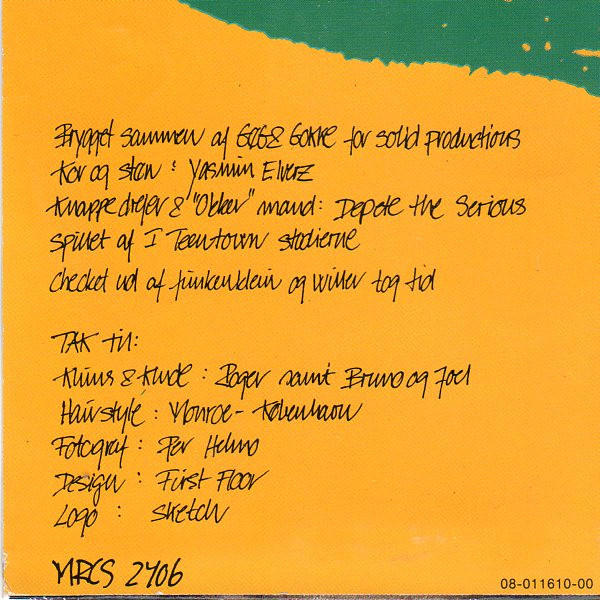 Brygget sammen af GQG& Gokke for solid productions
Kor og sten : Yasmin Elverz
Knappe drejer & "Okker" mand: Depete the Serious
Spillet af I Teentown studierne
Checket ud af funkenklein og Willer tog tid
TAK til:
Klüns & Klude : Roger samt Bruno og Joel
Hairstyle : Monroe - København
Fotograf : Per Helmo
Design : First Floor
Logo : sketch
MRCS 2406
08-011610-00